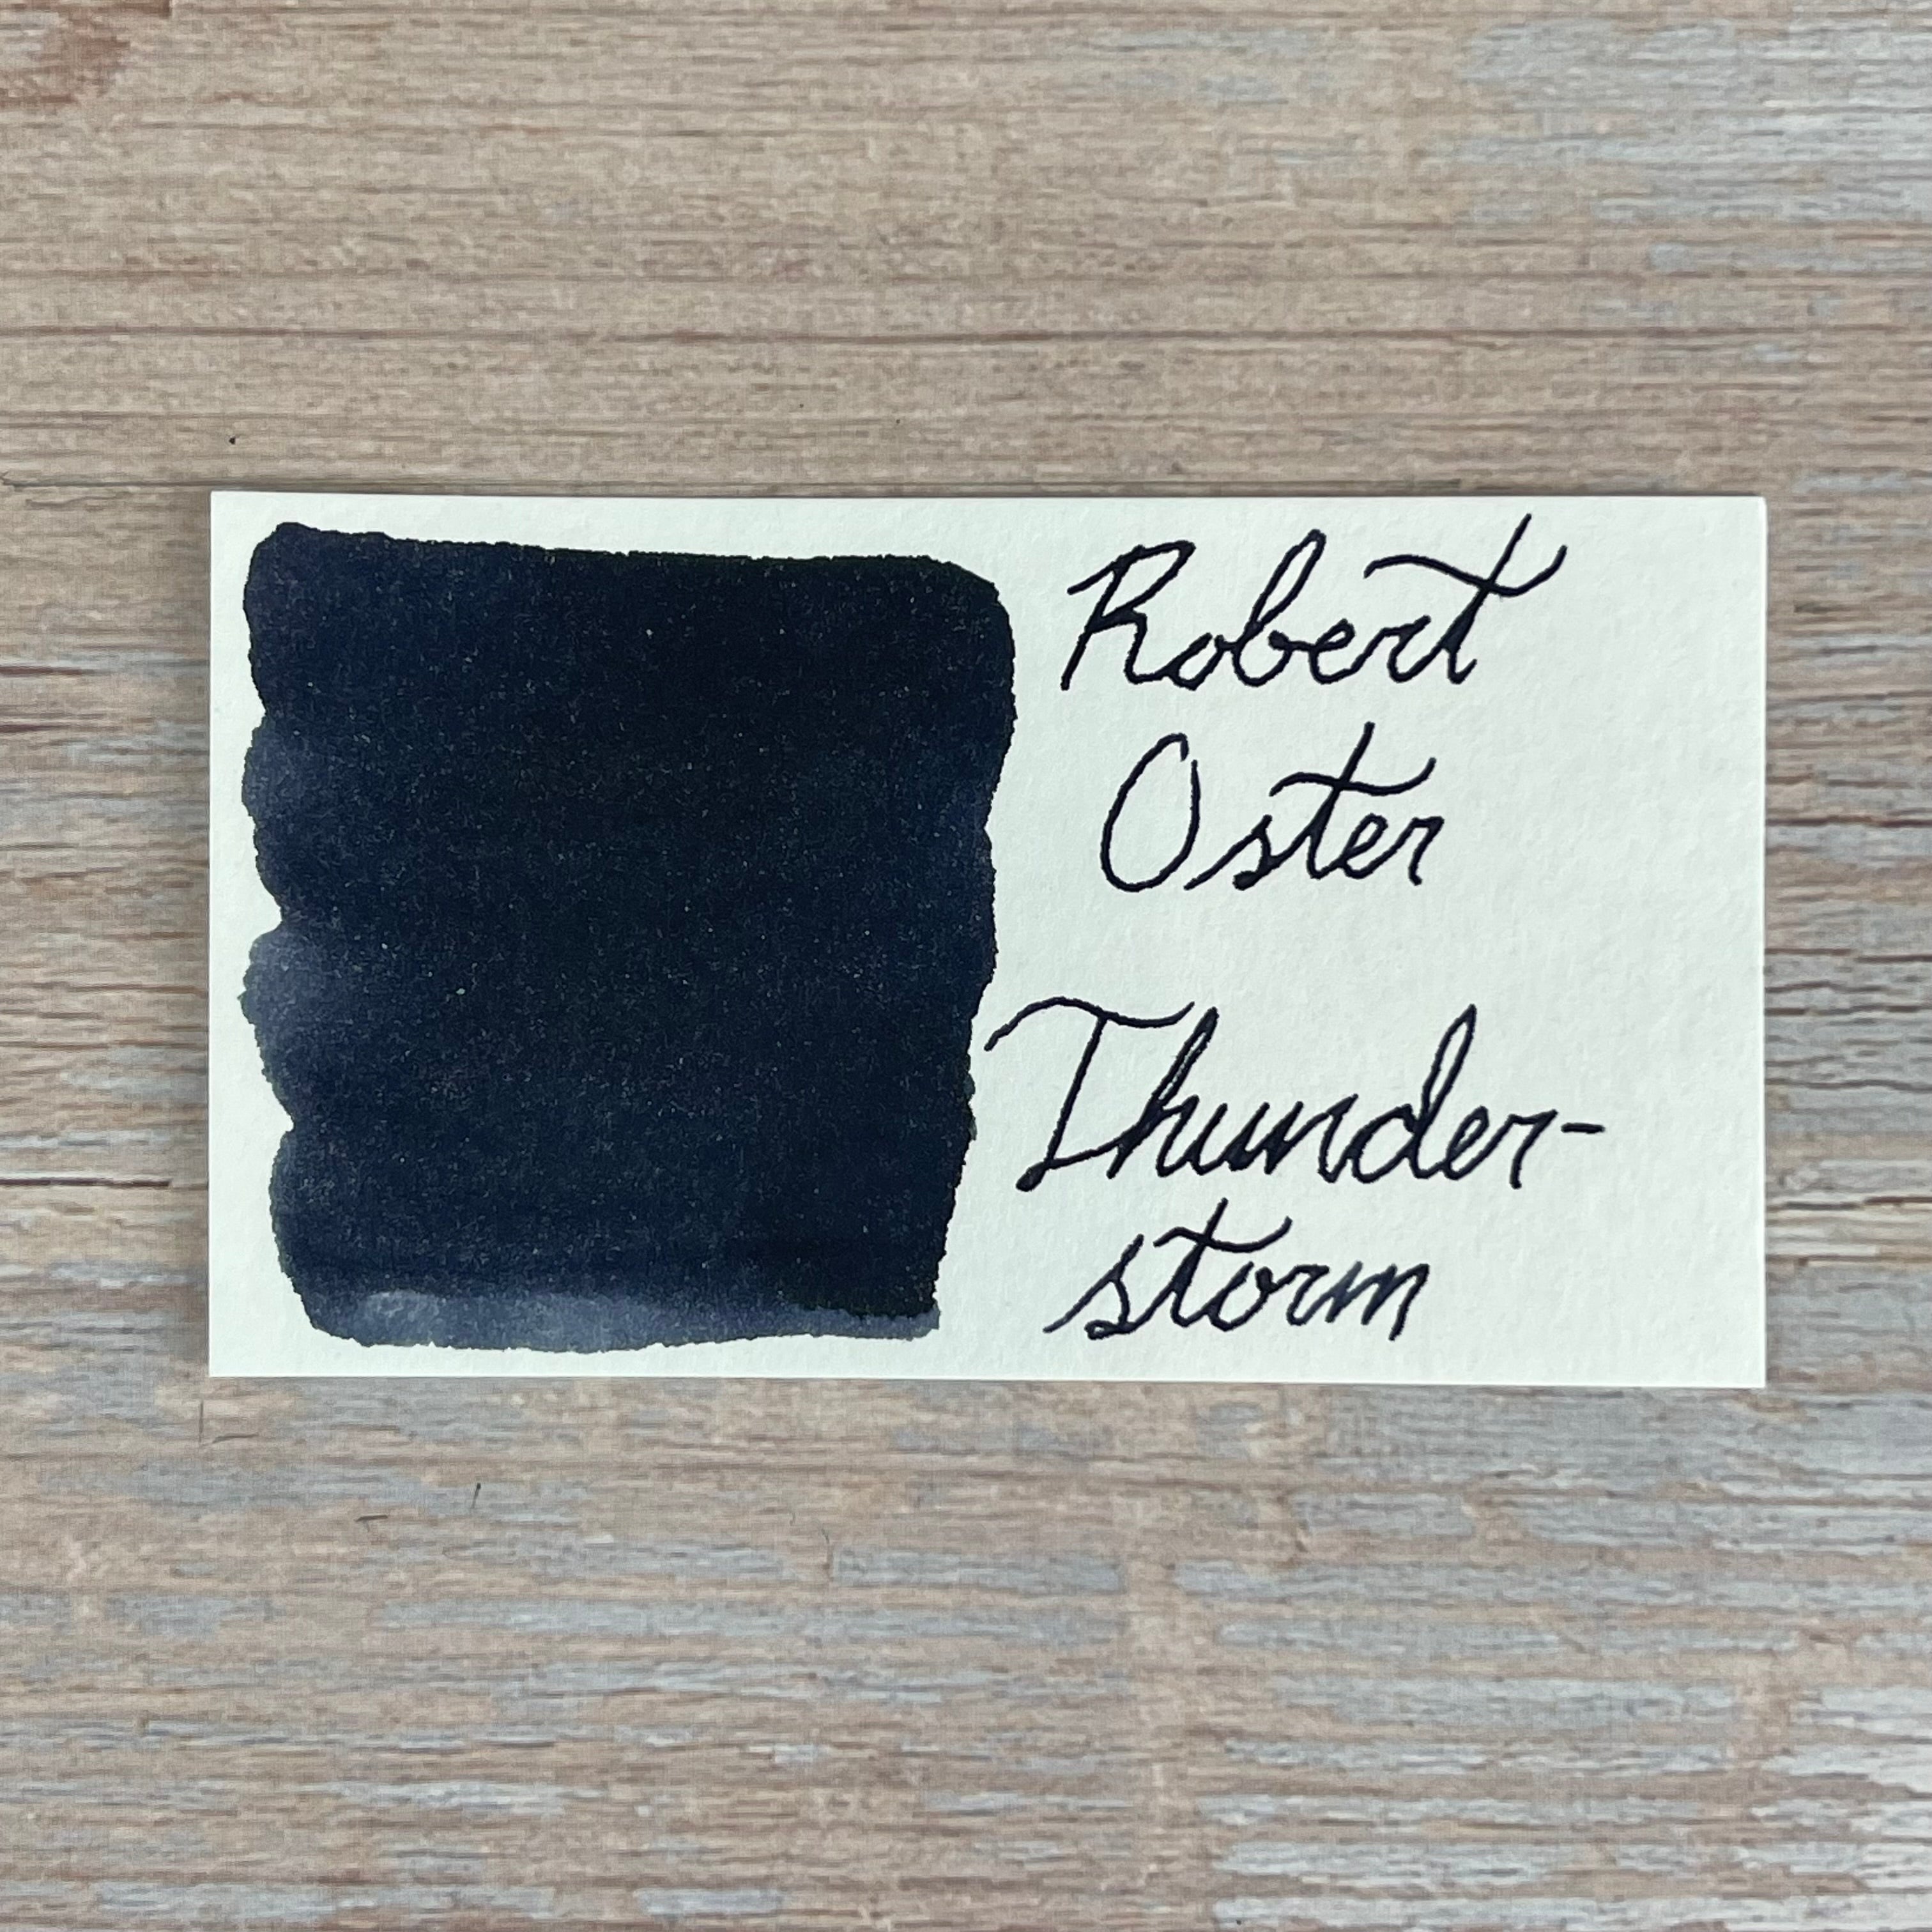 Robert
Oster
Thunder-
storm